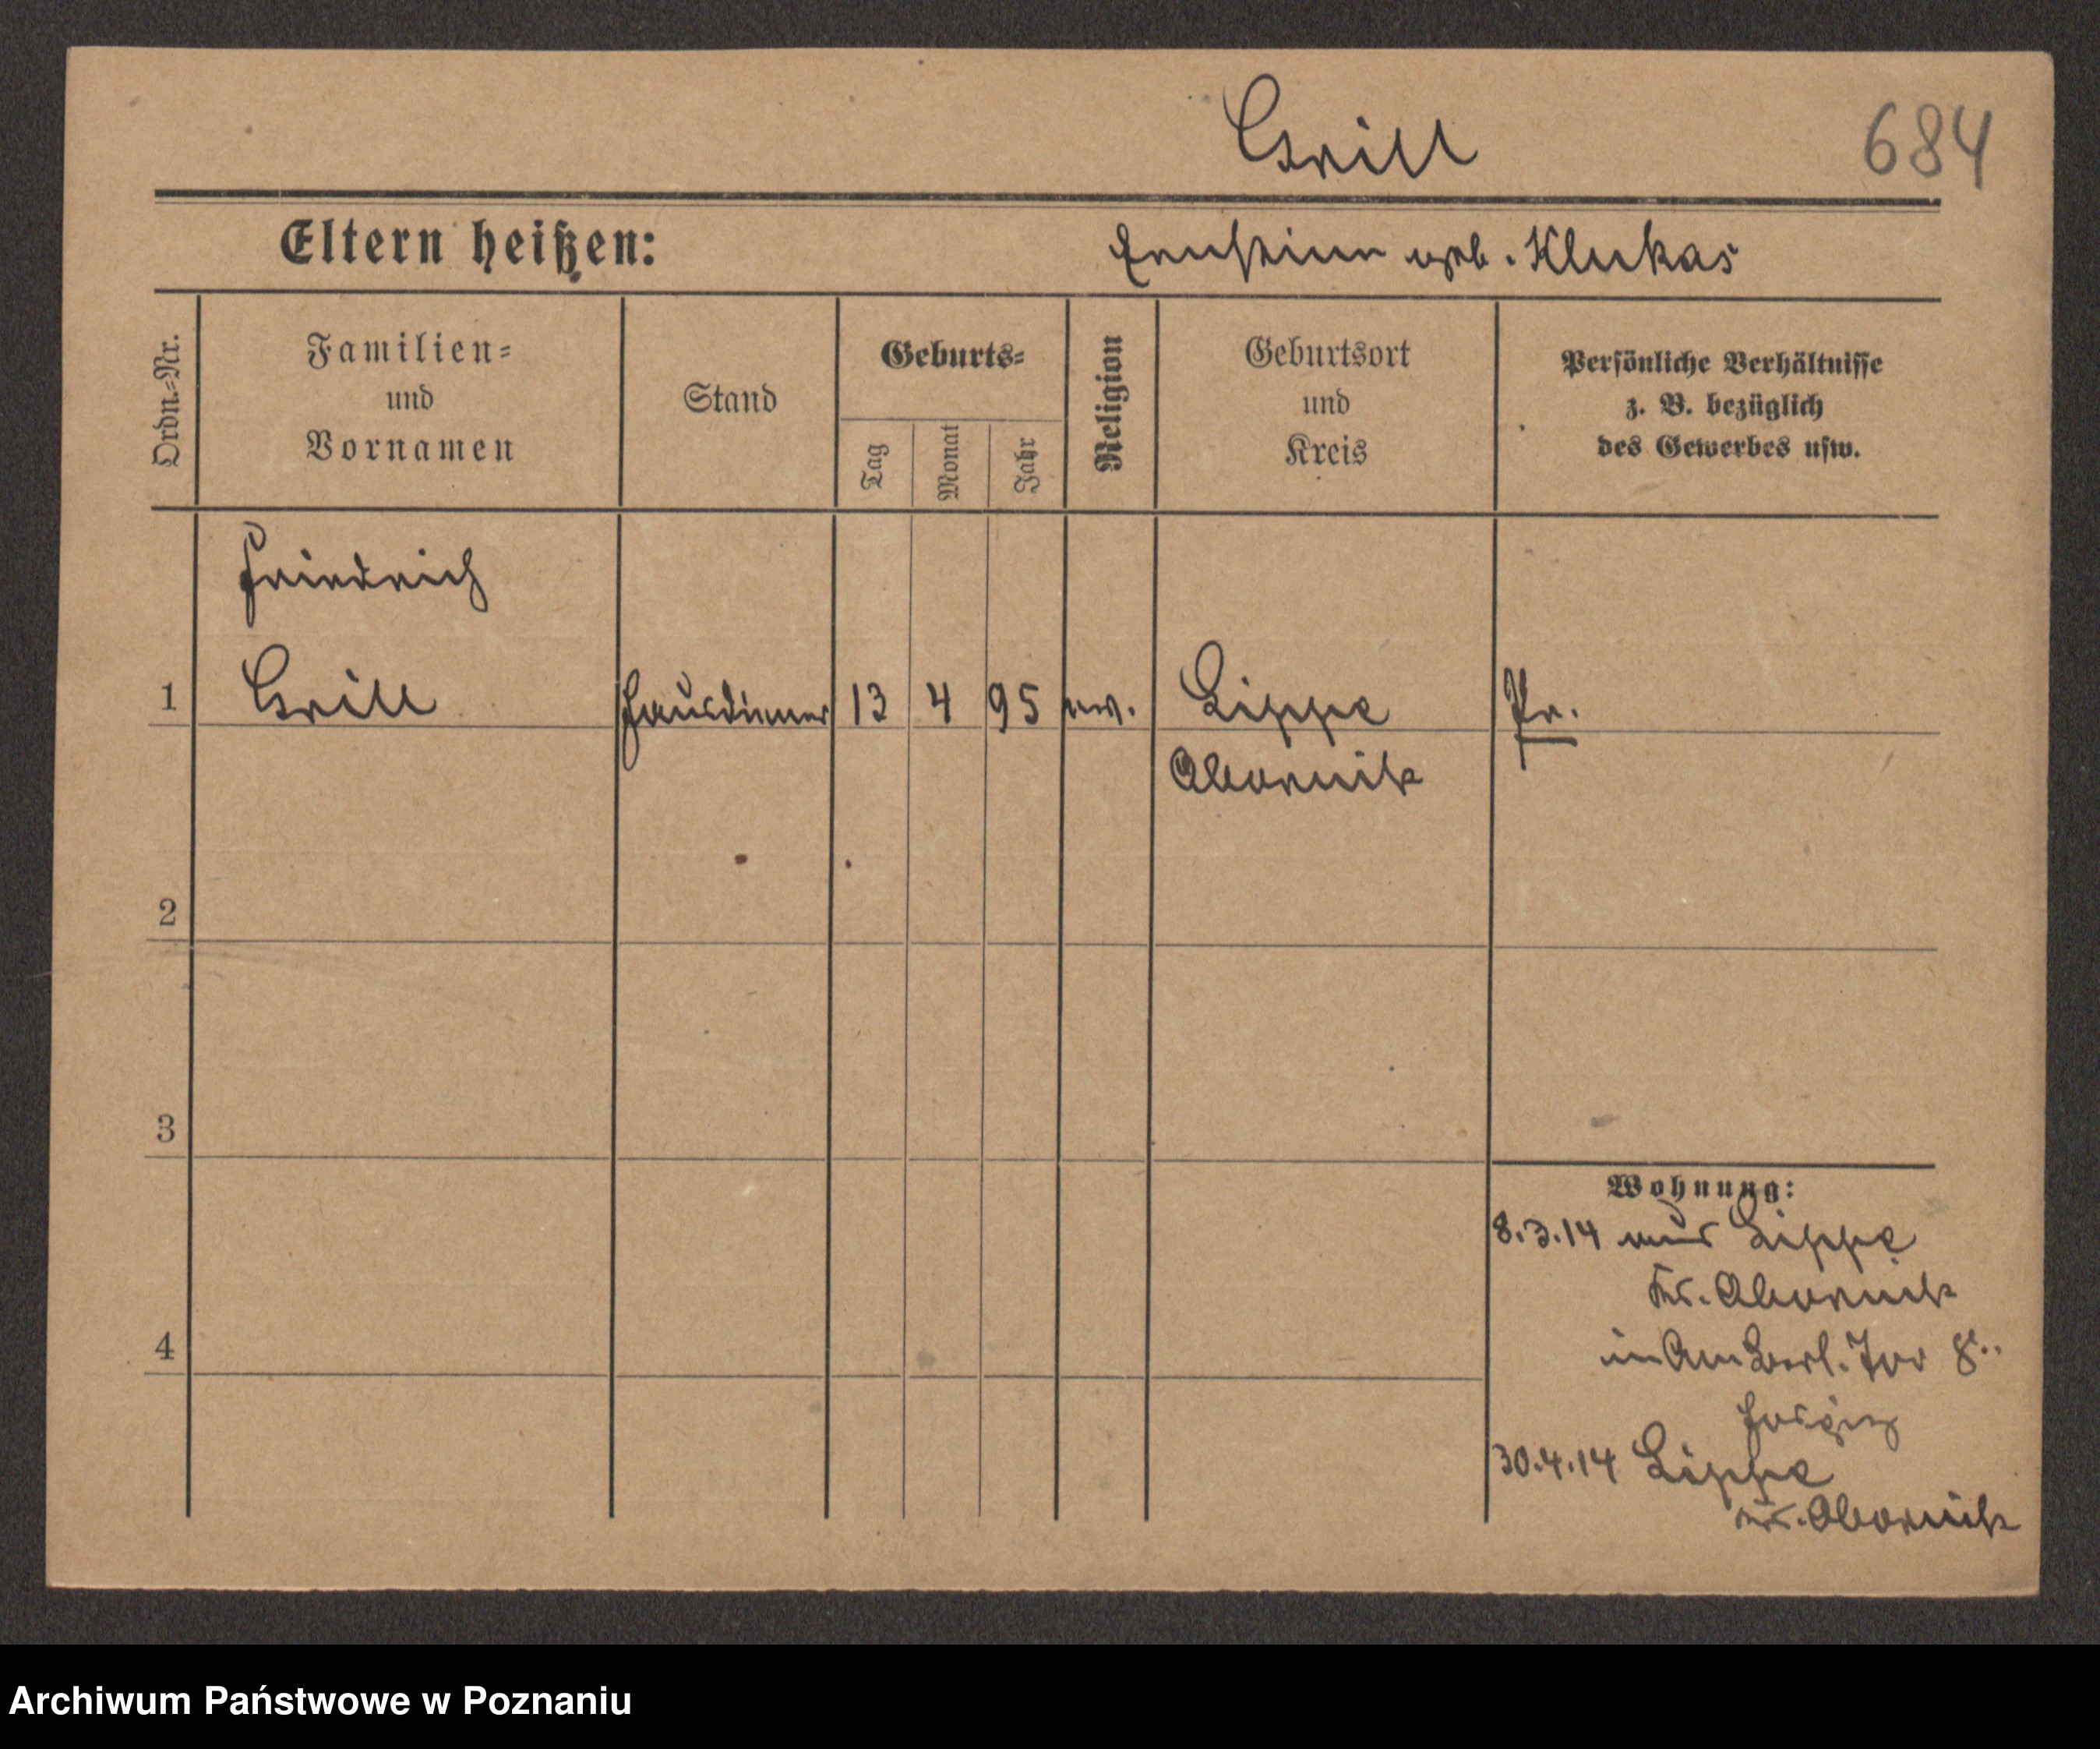 Grill
684
Eltern heißen:
Ernstine geb. Klukas
Ordn.-Nr.
Familien-
und
Vornamen
Stand
Geburts-
Tag
Monat
Jahr
Religion
Geburtsort
und
Kreis
Persönliche Verhältnisse
z. B. bezüglich
des Gewerbes usw.
Friedrich
1 Grill Hausdiener 13 4 95 ev. Lippe Pr.
Obornik
2
3
4
Wohnung:
8.3.14 aus Lippe
Krs. Obornik
in Am Berl. Tor 8
30.4.14 Lippe
Krs. Obornik
Archiwum Państwowe w Poznaniu